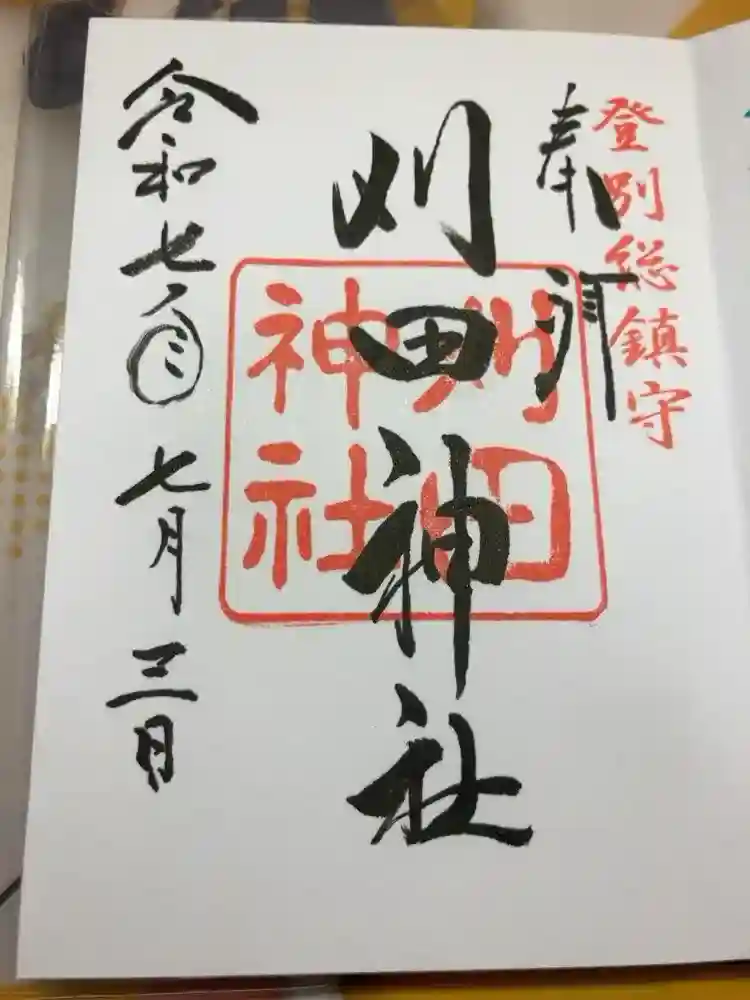 登別総鎮守
奉拝
刈田神社
刈田
神社
令和七年七月三日